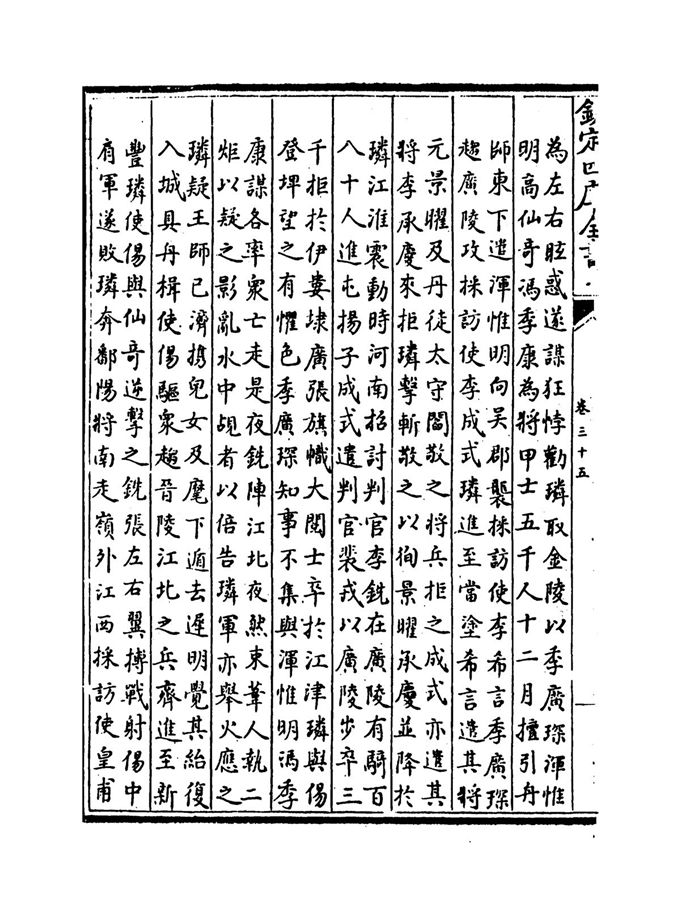 欽定四庫全書
卷三十五
為左右眩惑遂謀狂悖勸璘取金陵以季廣琛渾惟
明高仙奇馮季康為將甲士五千人十二月擅引舟
師東下遣渾惟明向吳郡襲採訪使李希言季廣琛
趨廣陵攻採訪使李成式璘進至當塗希言遣其將
元景曜及丹徒太守閻敬之將兵拒之成式亦遣其
將李承慶來拒璘擊斬敬之以徇景曜承慶並降於
璘江淮震動時河南招討判官李銑在廣陵有騎百
八十人進屯揚子成式遣判官裴戎以廣陵步卒三
千拒於伊婁埭廣張旗幟大閱士卒於江津璘與偒
登埤望之有懼色季廣琛知事不集與渾惟明馮季
康謀各率衆亡走是夜銑陣江北夜然束葦人執二
炬以疑之影亂水中覘者以倍告璘軍亦舉火應之
璘疑王師已濟携兒女及麾下遁去遲明覺其紿復
入城具舟楫使偒驅衆趨晉陵江北之兵齊進至新
豐璘使偒與仙奇逆擊之銑張左右翼搏戰射偒中
肩軍遂敗璘奔鄱陽將南走嶺外江西採訪使皇甫